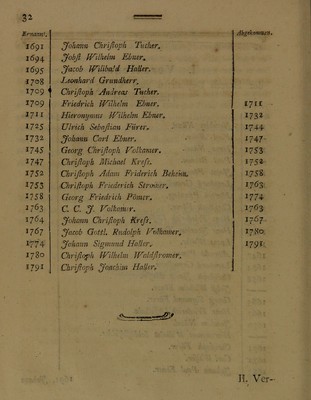 32
Ernannt. Abgekommen.
1691 Johann Christoph Tucher.
1694 Jobst Wilhelm Ebner.
1695 Jacob Wilibald Haller.
1708 Leonhard Grundherr.
1709 Christoph Andreas Tucher.
1709 Friedrich Wilhelm Ebner. 1711
1711 Hieronymus Wilhelm Ebner. 1732
1725 Ulrich Sebastian Fürer. 1744
1732 Johann Carl Ebner. 1747
1745 Georg Christoph Volkamer. 1753
1747 Christoph Michael Kress. 1752
1752 Christoph Adam Friderich Beheim. 1758
1753 Christoph Friederich Stromer. 1763
1758 Georg Friedrich Pömer. 1774
1763 C. C. J. Volkamer. 1763
1764 Johann Christoph Kress. 1767
1767 Jacob Gottl. Rudolph Volkamer. 1780
1774 Johann Sigmund Haller. 1791
1780 Christoph Wilhelm Waldstromer.
1791 Christoph Joachim Haller.
II. Ver-